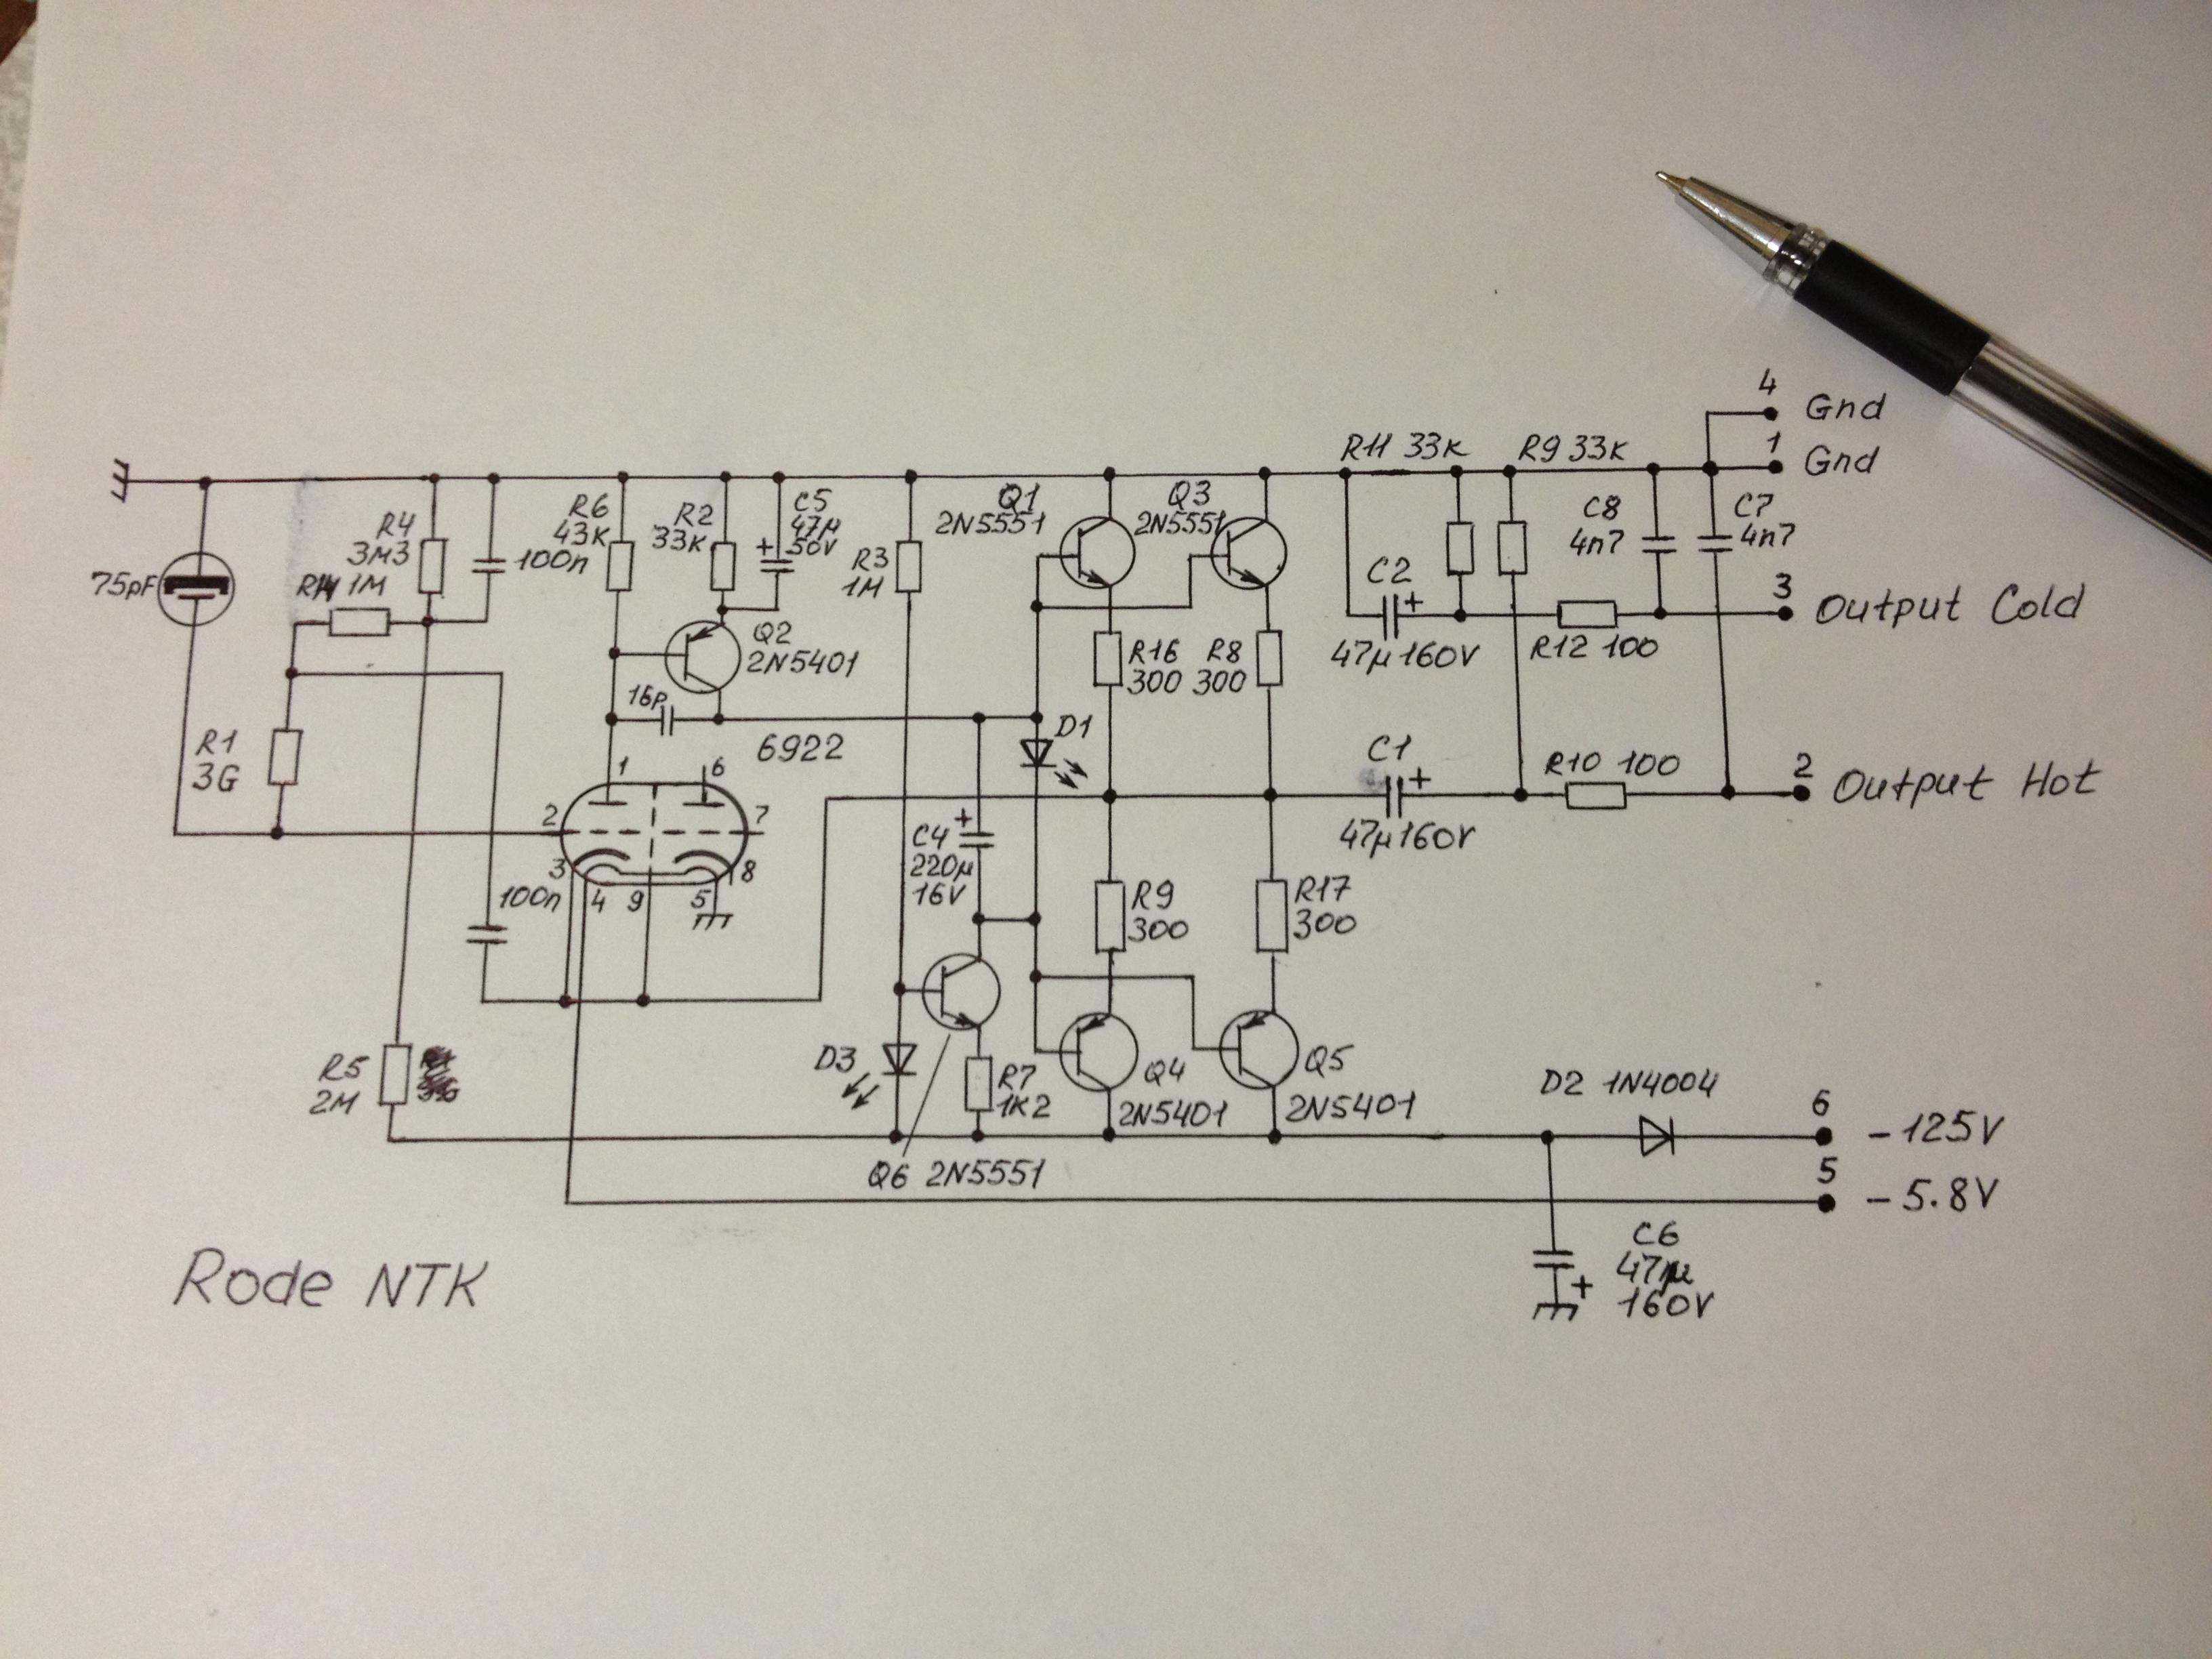 4 Gnd
1 Gnd
R11 33K
R9 33K
Q1
2N5551
Q3
2N5551
R6
43K
R2
33K
C5
47µ
50V
+
R4
3M3
100n
R3
1M
C8
4n7
C7
4n7
75pF
1M
C2
+
47µ160V
3 Output Cold
R12 100
Q2
2N5401
R16
300
R8
300
16p
6922
D1
R1
3G
1
6
2
7
3
8
4
9
5
C1
+
47µ160V
R10 100
2 Output Hot
C4
220µ
16V
+
100n
R9
300
R17
300
R5
2M
D3
R7
1K2
Q4
2N5401
Q5
2N5401
D2 1N4004
6 -125V
5 -5.8V
Q6 2N5551
C6
47µ
160V
+
Rode NTK